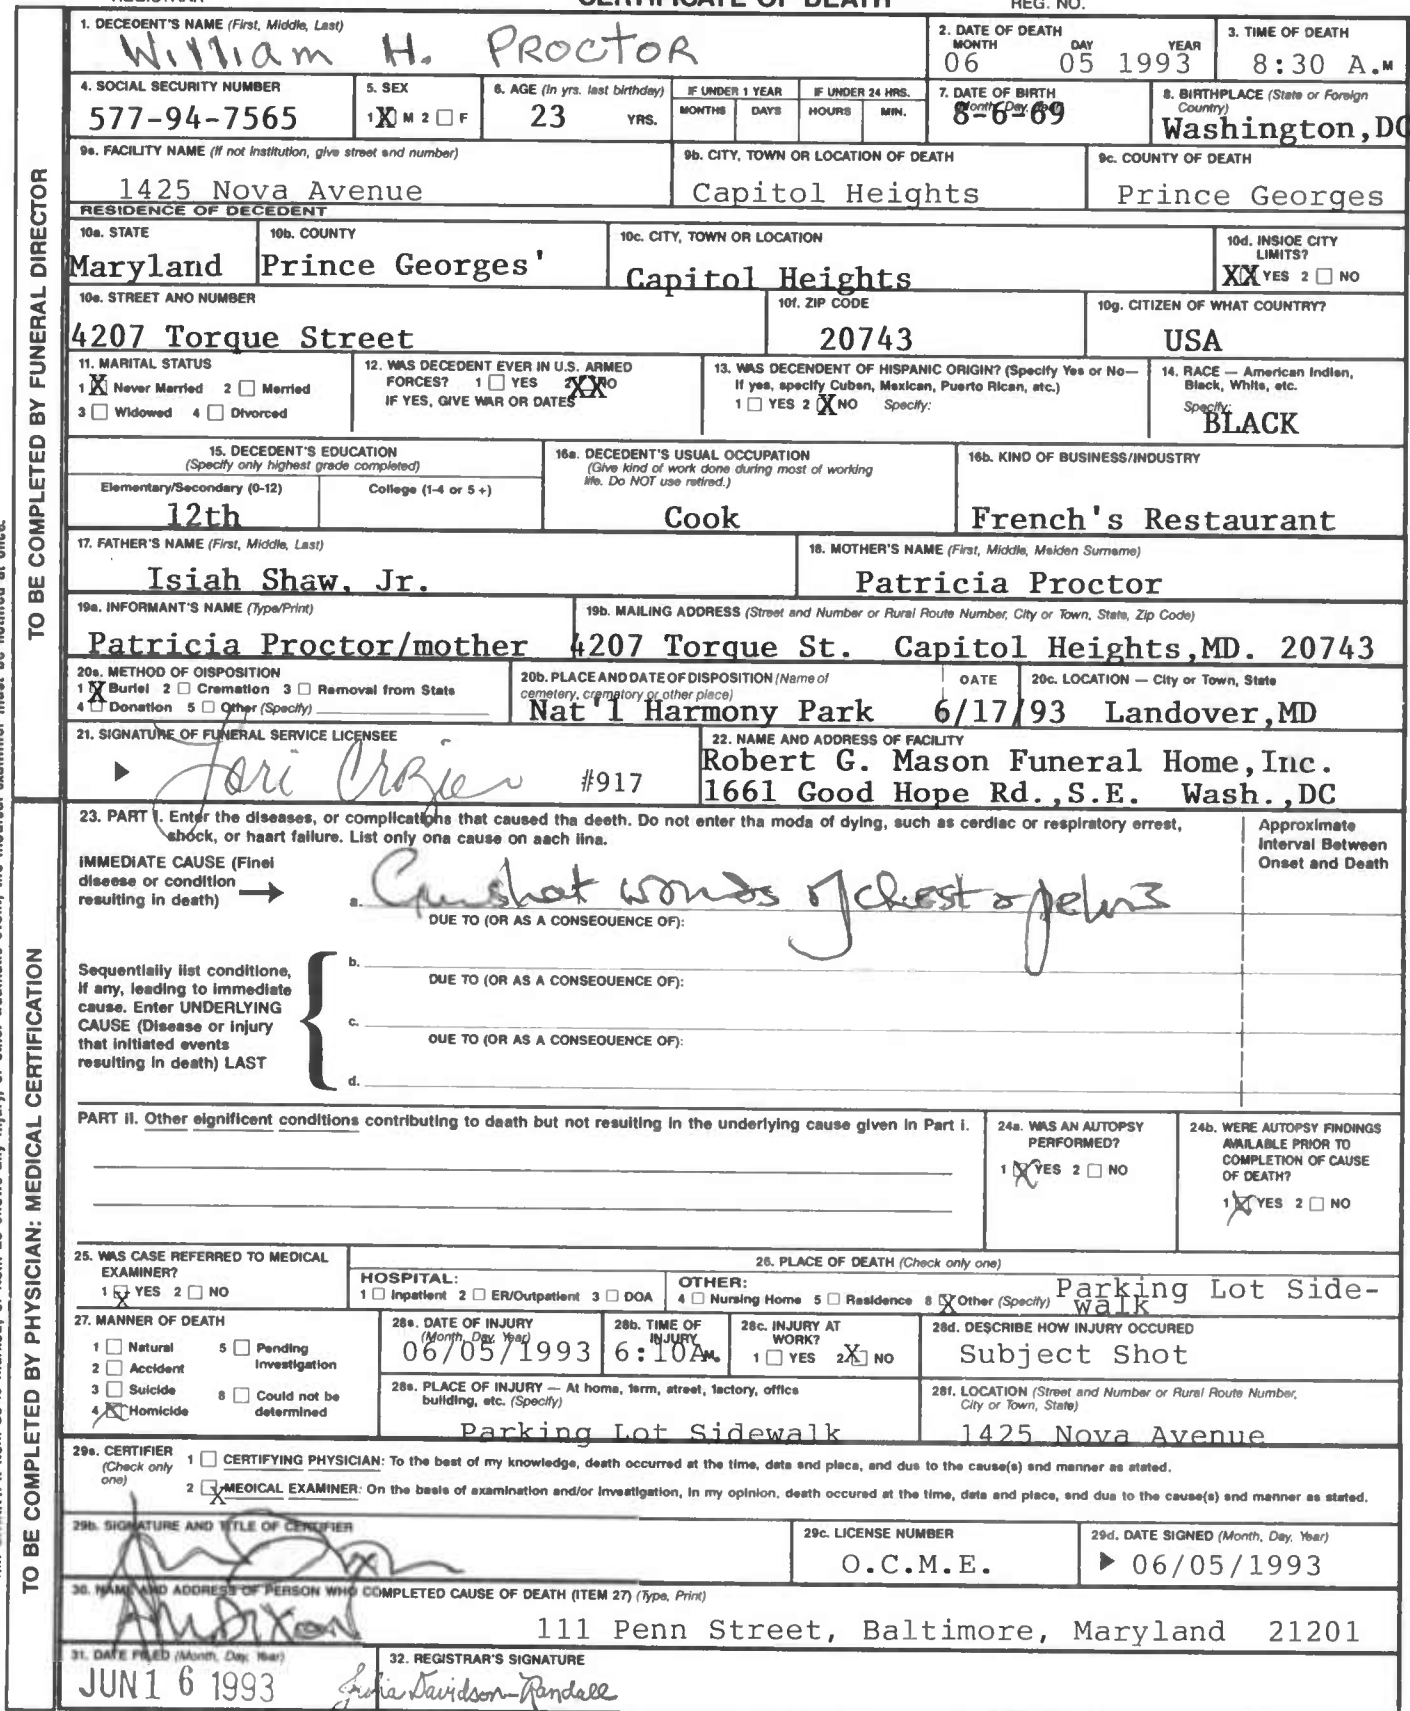 CERTIFICATE OF DEATH
REG. NO.
1. DECEDENT'S NAME (First, Middle, Last)
William H. PROCTOR
2. DATE OF DEATH
MONTH DAY YEAR
06 05 1993
3. TIME OF DEATH
8:30 A.M
4. SOCIAL SECURITY NUMBER
577-94-7565
5. SEX
1 X M 2 ☐ F
6. AGE (In yrs. last birthday)
23 YRS.
IF UNDER 1 YEAR
MONTHS DAYS
IF UNDER 24 HRS.
HOURS MIN.
7. DATE OF BIRTH
(Month, Day, Year)
8-6-69
8. BIRTHPLACE (State or Foreign Country)
Washington,DC
9a. FACILITY NAME (If not institution, give street and number)
1425 Nova Avenue
9b. CITY, TOWN OR LOCATION OF DEATH
Capitol Heights
9c. COUNTY OF DEATH
Prince Georges
RESIDENCE OF DECEDENT
10a. STATE
Maryland
10b. COUNTY
Prince Georges'
10c. CITY, TOWN OR LOCATION
Capitol Heights
10d. INSIDE CITY LIMITS?
XX YES 2 ☐ NO
10e. STREET AND NUMBER
4207 Torque Street
10f. ZIP CODE
20743
10g. CITIZEN OF WHAT COUNTRY?
USA
11. MARITAL STATUS
1 X Never Married 2 ☐ Married
3 ☐ Widowed 4 ☐ Divorced
12. WAS DECEDENT EVER IN U.S. ARMED
FORCES? 1 ☐ YES 2 XX NO
IF YES, GIVE WAR OR DATES
13. WAS DECENDENT OF HISPANIC ORIGIN? (Specify Yes or No—
If yes, specify Cuban, Mexican, Puerto Rican, etc.)
1 ☐ YES 2 X NO Specify:
14. RACE — American Indian,
Black, White, etc.
Specify:
BLACK
15. DECEDENT'S EDUCATION
(Specify only highest grade completed)
Elementary/Secondary (0-12) College (1-4 or 5 +)
12th
16a. DECEDENT'S USUAL OCCUPATION
(Give kind of work done during most of working
life. Do NOT use retired.)
Cook
16b. KIND OF BUSINESS/INDUSTRY
French's Restaurant
17. FATHER'S NAME (First, Middle, Last)
Isiah Shaw, Jr.
18. MOTHER'S NAME (First, Middle, Maiden Surname)
Patricia Proctor
19a. INFORMANT'S NAME (Type/Print)
Patricia Proctor/mother
19b. MAILING ADDRESS (Street and Number or Rural Route Number, City or Town, State, Zip Code)
4207 Torque St. Capitol Heights,MD. 20743
20a. METHOD OF DISPOSITION
1 X Burial 2 ☐ Cremation 3 ☐ Removal from State
4 ☐ Donation 5 ☐ Other (Specify)
20b. PLACE AND DATE OF DISPOSITION (Name of
cemetery, crematory or other place)
Nat'l Harmony Park
DATE
6/17/93
20c. LOCATION — City or Town, State
Landover,MD
21. SIGNATURE OF FUNERAL SERVICE LICENSEE
Lori Crozier #917
22. NAME AND ADDRESS OF FACILITY
Robert G. Mason Funeral Home,Inc.
1661 Good Hope Rd.,S.E. Wash.,DC
23. PART I. Enter the diseases, or complications that caused the death. Do not enter the mode of dying, such as cardiac or respiratory arrest,
shock, or heart failure. List only one cause on each line.
Approximate
Interval Between
Onset and Death
IMMEDIATE CAUSE (Final
disease or condition
resulting in death)
a. Gunshot wonds of chest & pelvis
DUE TO (OR AS A CONSEQUENCE OF):
Sequentially list conditions,
if any, leading to immediate
cause. Enter UNDERLYING
CAUSE (Disease or injury
that initiated events
resulting in death) LAST
b.
DUE TO (OR AS A CONSEQUENCE OF):
c.
DUE TO (OR AS A CONSEQUENCE OF):
d.
PART II. Other significant conditions contributing to death but not resulting in the underlying cause given in Part I.
24a. WAS AN AUTOPSY
PERFORMED?
1 X YES 2 ☐ NO
24b. WERE AUTOPSY FINDINGS
AVAILABLE PRIOR TO
COMPLETION OF CAUSE
OF DEATH?
1 X YES 2 ☐ NO
25. WAS CASE REFERRED TO MEDICAL
EXAMINER?
1 X YES 2 ☐ NO
26. PLACE OF DEATH (Check only one)
HOSPITAL:
1 ☐ Inpatient 2 ☐ ER/Outpatient 3 ☐ DOA
OTHER:
4 ☐ Nursing Home 5 ☐ Residence 8 X Other (Specify) Parking Lot Side-
walk
27. MANNER OF DEATH
1 ☐ Natural 5 ☐ Pending
2 ☐ Accident Investigation
3 ☐ Suicide 8 ☐ Could not be
4 X Homicide determined
28a. DATE OF INJURY
(Month, Day, Year)
06/05/1993
28b. TIME OF
INJURY
6:10A M.
28c. INJURY AT
WORK?
1 ☐ YES 2 X NO
28d. DESCRIBE HOW INJURY OCCURED
Subject Shot
28e. PLACE OF INJURY — At home, farm, street, factory, office
building, etc. (Specify)
Parking Lot Sidewalk
28f. LOCATION (Street and Number or Rural Route Number,
City or Town, State)
1425 Nova Avenue
29a. CERTIFIER
(Check only
one)
1 ☐ CERTIFYING PHYSICIAN: To the best of my knowledge, death occurred at the time, date and place, and due to the cause(s) and manner as stated.
2 X MEDICAL EXAMINER: On the basis of examination and/or investigation, in my opinion, death occured at the time, date and place, and due to the cause(s) and manner as stated.
29b. SIGNATURE AND TITLE OF CERTIFIER
29c. LICENSE NUMBER
O.C.M.E.
29d. DATE SIGNED (Month, Day, Year)
06/05/1993
30. NAME AND ADDRESS OF PERSON WHO COMPLETED CAUSE OF DEATH (ITEM 27) (Type, Print)
Ann Dixon
111 Penn Street, Baltimore, Maryland 21201
31. DATE FILED (Month, Day, Year)
JUN 16 1993
32. REGISTRAR'S SIGNATURE
Julia Davidson-Randall
TO BE COMPLETED BY FUNERAL DIRECTOR
TO BE COMPLETED BY PHYSICIAN: MEDICAL CERTIFICATION